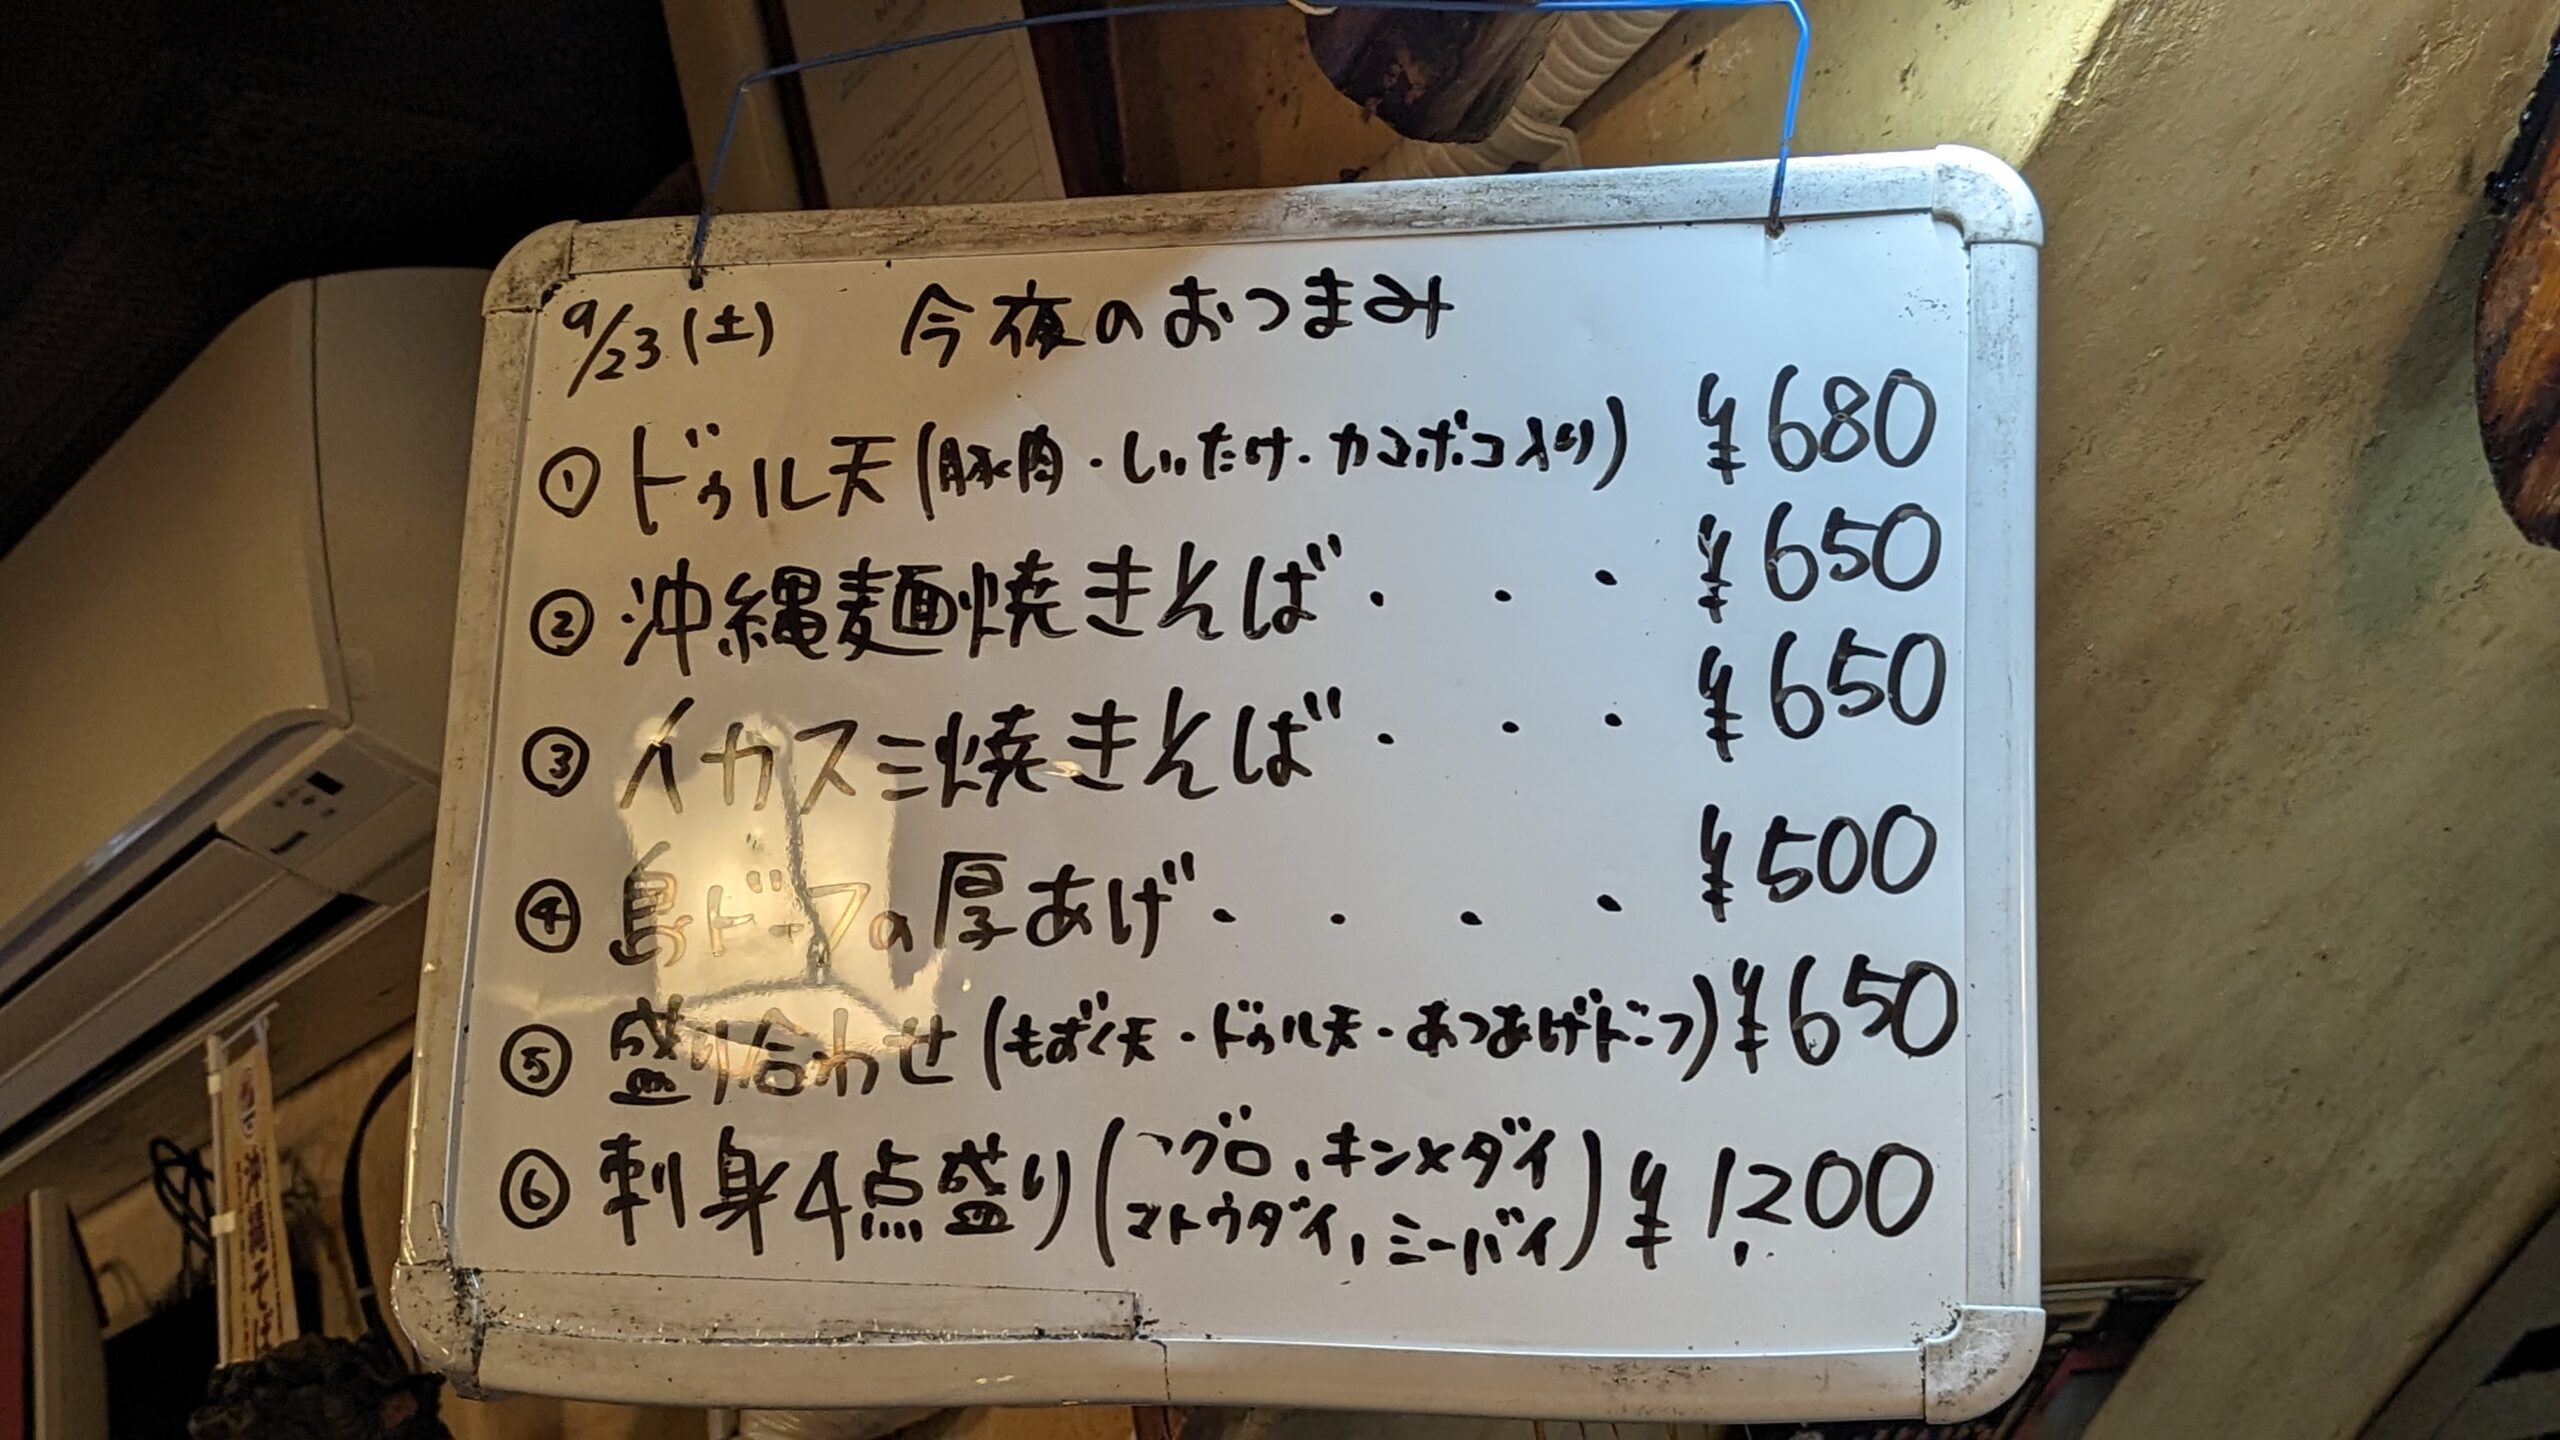 9/23(土) 今夜のおつまみ
① ドゥル天(豚肉・しいたけ・カマボコ入り) ¥680
② 沖縄麺焼きそば・・・¥650
③ イカスミ焼きそば・・・¥650
④ 島ドーフの厚あげ・・・・¥500
⑤ 盛り合わせ(もずく天・ドゥル天・あつあげドーフ) ¥650
⑥ 刺身4点盛り(マグロ,キンメダイ
マトウダイ,ミーバイ) ¥1,200